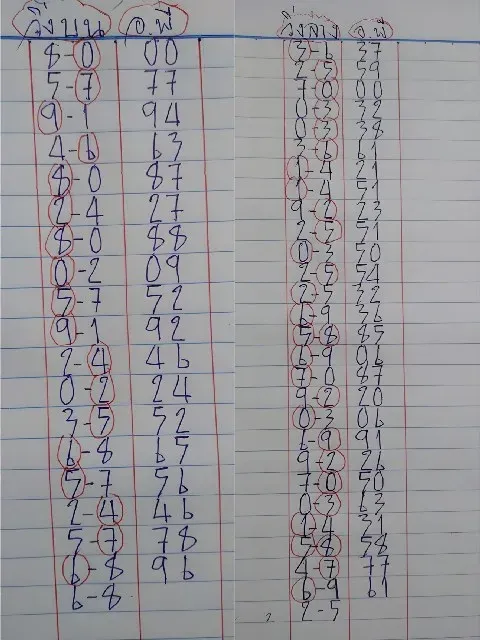 วิ่งบน อ.พี
8-0 00
5-7 77
9-1 94
4-6 63
8-0 87
2-4 27
8-0 88
0-2 09
5-7 52
9-1 92
2-4 46
0-2 24
3-5 52
6-8 65
5-7 56
2-4 46
5-7 78
6-8 96
6-8
วิ่งล่าง อ.พี
3-6 37
2-5 59
7-0 00
0-3 32
0-3 38
3-6 61
1-4 21
1-4 51
9-2 23
2-5 51
0-3 50
2-5 54
2-5 32
6-9 36
5-8 85
6-9 06
7-0 87
9-2 20
0-3 06
6-9 91
9-2 26
7-0 50
0-3 63
1-4 31
5-8 58
4-7 77
6-9 61
2-5